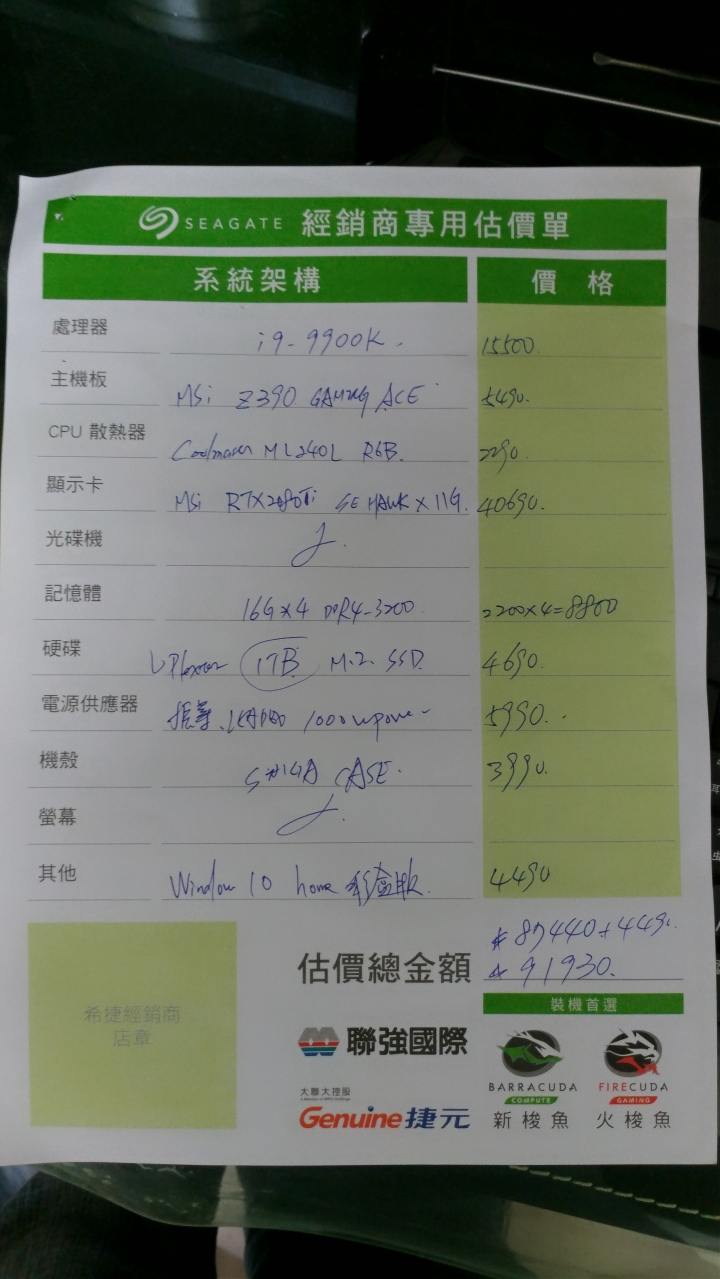 SEAGATE 經銷商專用估價單
系統架構 價格
處理器 i9-9900K. 15500.
主機板 MSi Z390 GAMING ACE 5490.
CPU 散熱器 ML240L RGB. 2290.
顯示卡 MSi RTX2080Ti SE HAWK X 11G. 40690.
光碟機
記憶體 16G×4 DDR4-3200 2200×4=8800
硬碟 Plextor 1TB M.2. SSD 4690.
電源供應器 振華 1000w 5990.
機殼 CASE. 3990.
螢幕
其他 Window 10 home 彩盒版. 4490
87440+4490.
估價總金額 91930.
希捷經銷商
店章
裝機首選
聯強國際
BARRACUDA FIRECUDA
COMPUTE GAMING
新梭魚 火梭魚
大聯大控股
Genuine 捷元